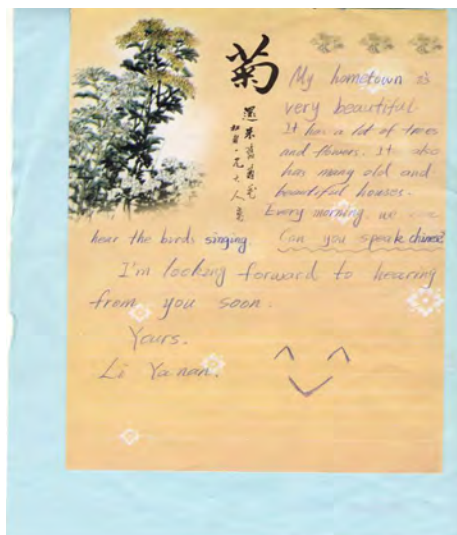 菊
My hometown is
very beautiful.
It has a lot of trees
and flowers. It also
has many old and
beautiful houses.
Every morning we
hear the birds singing. Can you speak chinese?
I'm looking forward to hearing
from you soon.
Yours.
Li Yanan.